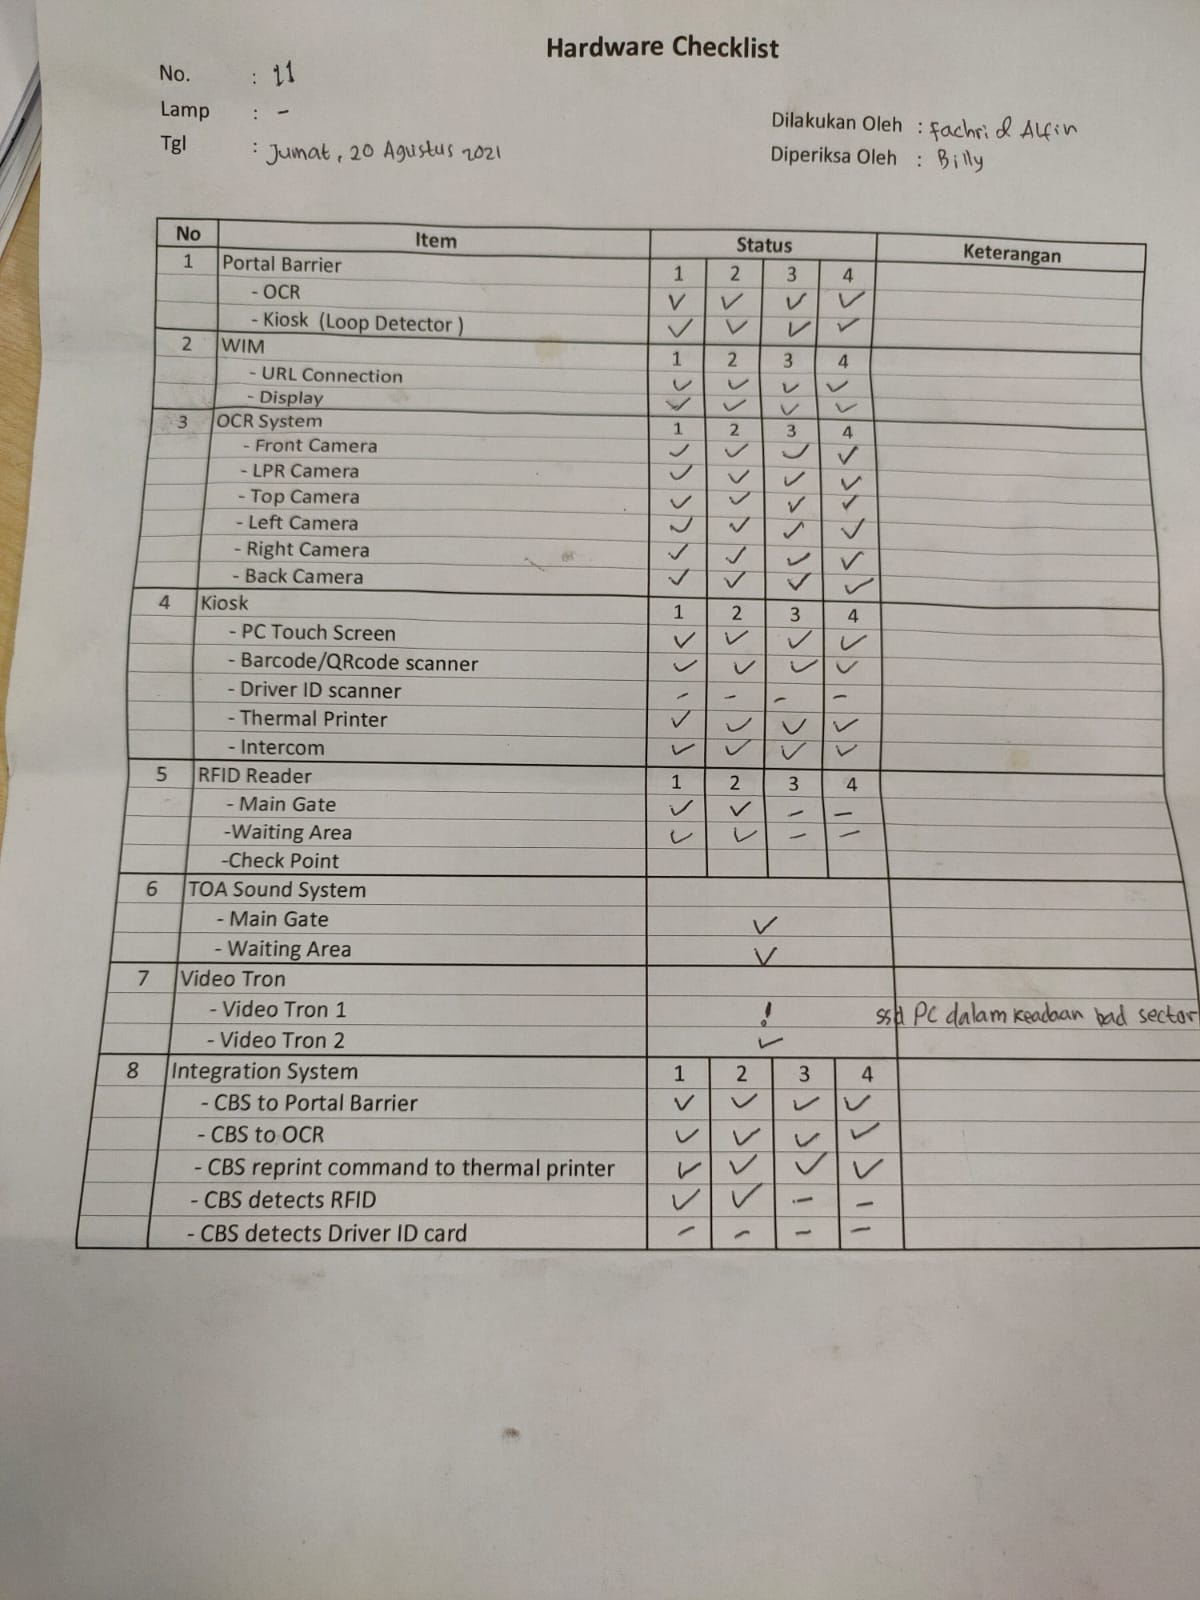 Hardware Checklist
No. : 11
Lamp : -
Tgl : Jumat, 20 Agustus 2021
Dilakukan Oleh : Fachri & Alfin
Diperiksa Oleh : Billy
No Item Status Keterangan
1 Portal Barrier 1 2 3 4
- OCR ✓ ✓ ✓ ✓
- Kiosk (Loop Detector ) ✓ ✓ ✓ ✓
2 WIM 1 2 3 4
- URL Connection ✓ ✓ ✓ ✓
- Display ✓ ✓ ✓ ✓
3 OCR System 1 2 3 4
- Front Camera ✓ ✓ ✓ ✓
- LPR Camera ✓ ✓ ✓ ✓
- Top Camera ✓ ✓ ✓ ✓
- Left Camera ✓ ✓ ✓ ✓
- Right Camera ✓ ✓ ✓ ✓
- Back Camera ✓ ✓ ✓ ✓
4 Kiosk 1 2 3 4
- PC Touch Screen ✓ ✓ ✓ ✓
- Barcode/QRcode scanner ✓ ✓ ✓ ✓
- Driver ID scanner - - - -
- Thermal Printer ✓ ✓ ✓ ✓
- Intercom ✓ ✓ ✓ ✓
5 RFID Reader 1 2 3 4
- Main Gate ✓ ✓ - -
-Waiting Area ✓ ✓ - -
-Check Point
6 TOA Sound System
- Main Gate ✓
- Waiting Area ✓
7 Video Tron
- Video Tron 1 ! ssd PC dalam keadaan bad sector
- Video Tron 2 ✓
8 Integration System 1 2 3 4
- CBS to Portal Barrier ✓ ✓ ✓ ✓
- CBS to OCR ✓ ✓ ✓ ✓
- CBS reprint command to thermal printer ✓ ✓ ✓ ✓
- CBS detects RFID ✓ ✓ - -
- CBS detects Driver ID card - - - -